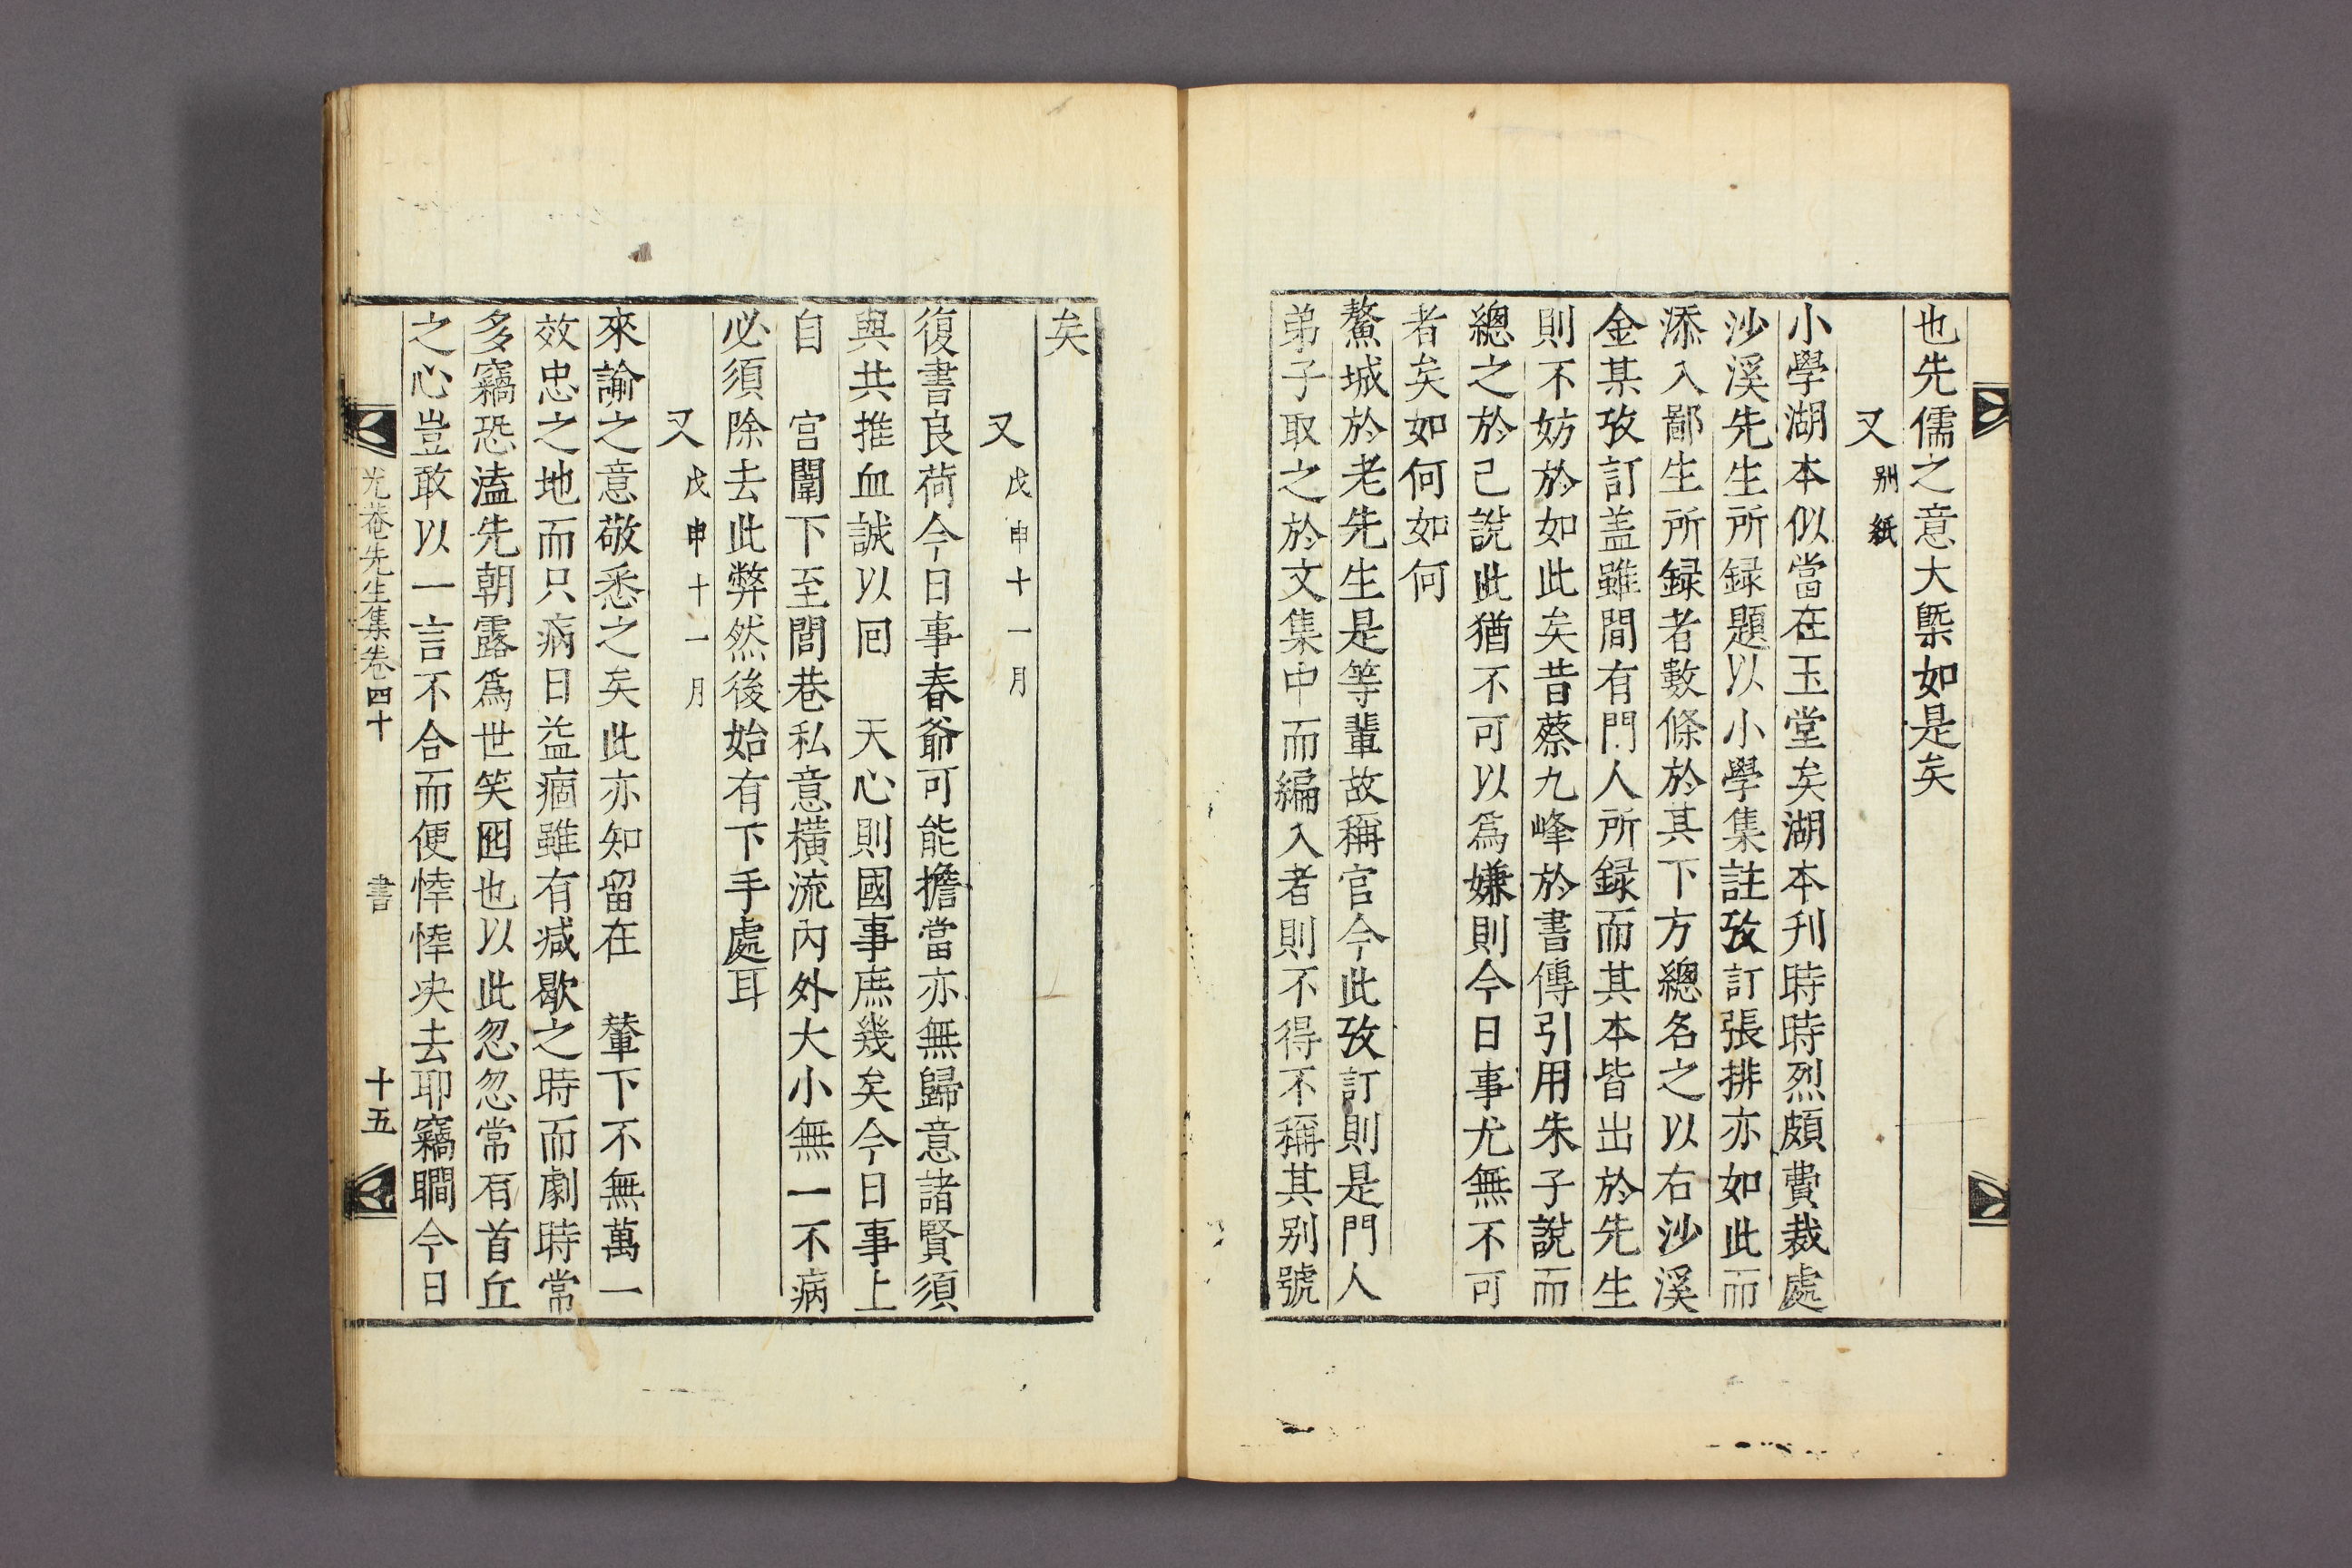 也先儒之意大槩如是矣
又别紙
小學湖本似當在玉堂矣湖本刋時時烈頗費裁處
沙溪先生所録題以小學集註攷訂張排亦如此而
添入鄙生所録者數條於其下方總名之以右沙溪
金某攷訂盖雖間有門人所録而其本皆出於先生
則不妨於如此矣昔蔡九峰於書傳引用朱子說而
總之於己說此猶不可以爲嫌則今日事尤無不可
者矣如何如何
鰲城於老先生是等輩故稱官今此攷訂則是門人
弟子取之於文集中而編入者則不得不稱其别號
矣
又戊申十一月
復書良荷今日事春爺可能擔當亦無歸意諸賢須
與共推血誠以囘 天心則國事庶幾矣今日事上
自 宫闈下至閭巷私意橫流內外大小無一不病
必須除去此弊然後始有下手處耳
又戊申十一月
來諭之意敬悉之矣此亦知留在 輦下不無萬一
效忠之地而只病日益痼雖有减歇之時而劇時常
多竊恐溘先朝露爲世笑囮也以此忽忽常有首丘
之心豈敢以一言不合而便悻悻决去耶竊瞯今日
尤菴先生集卷四十 書 十五